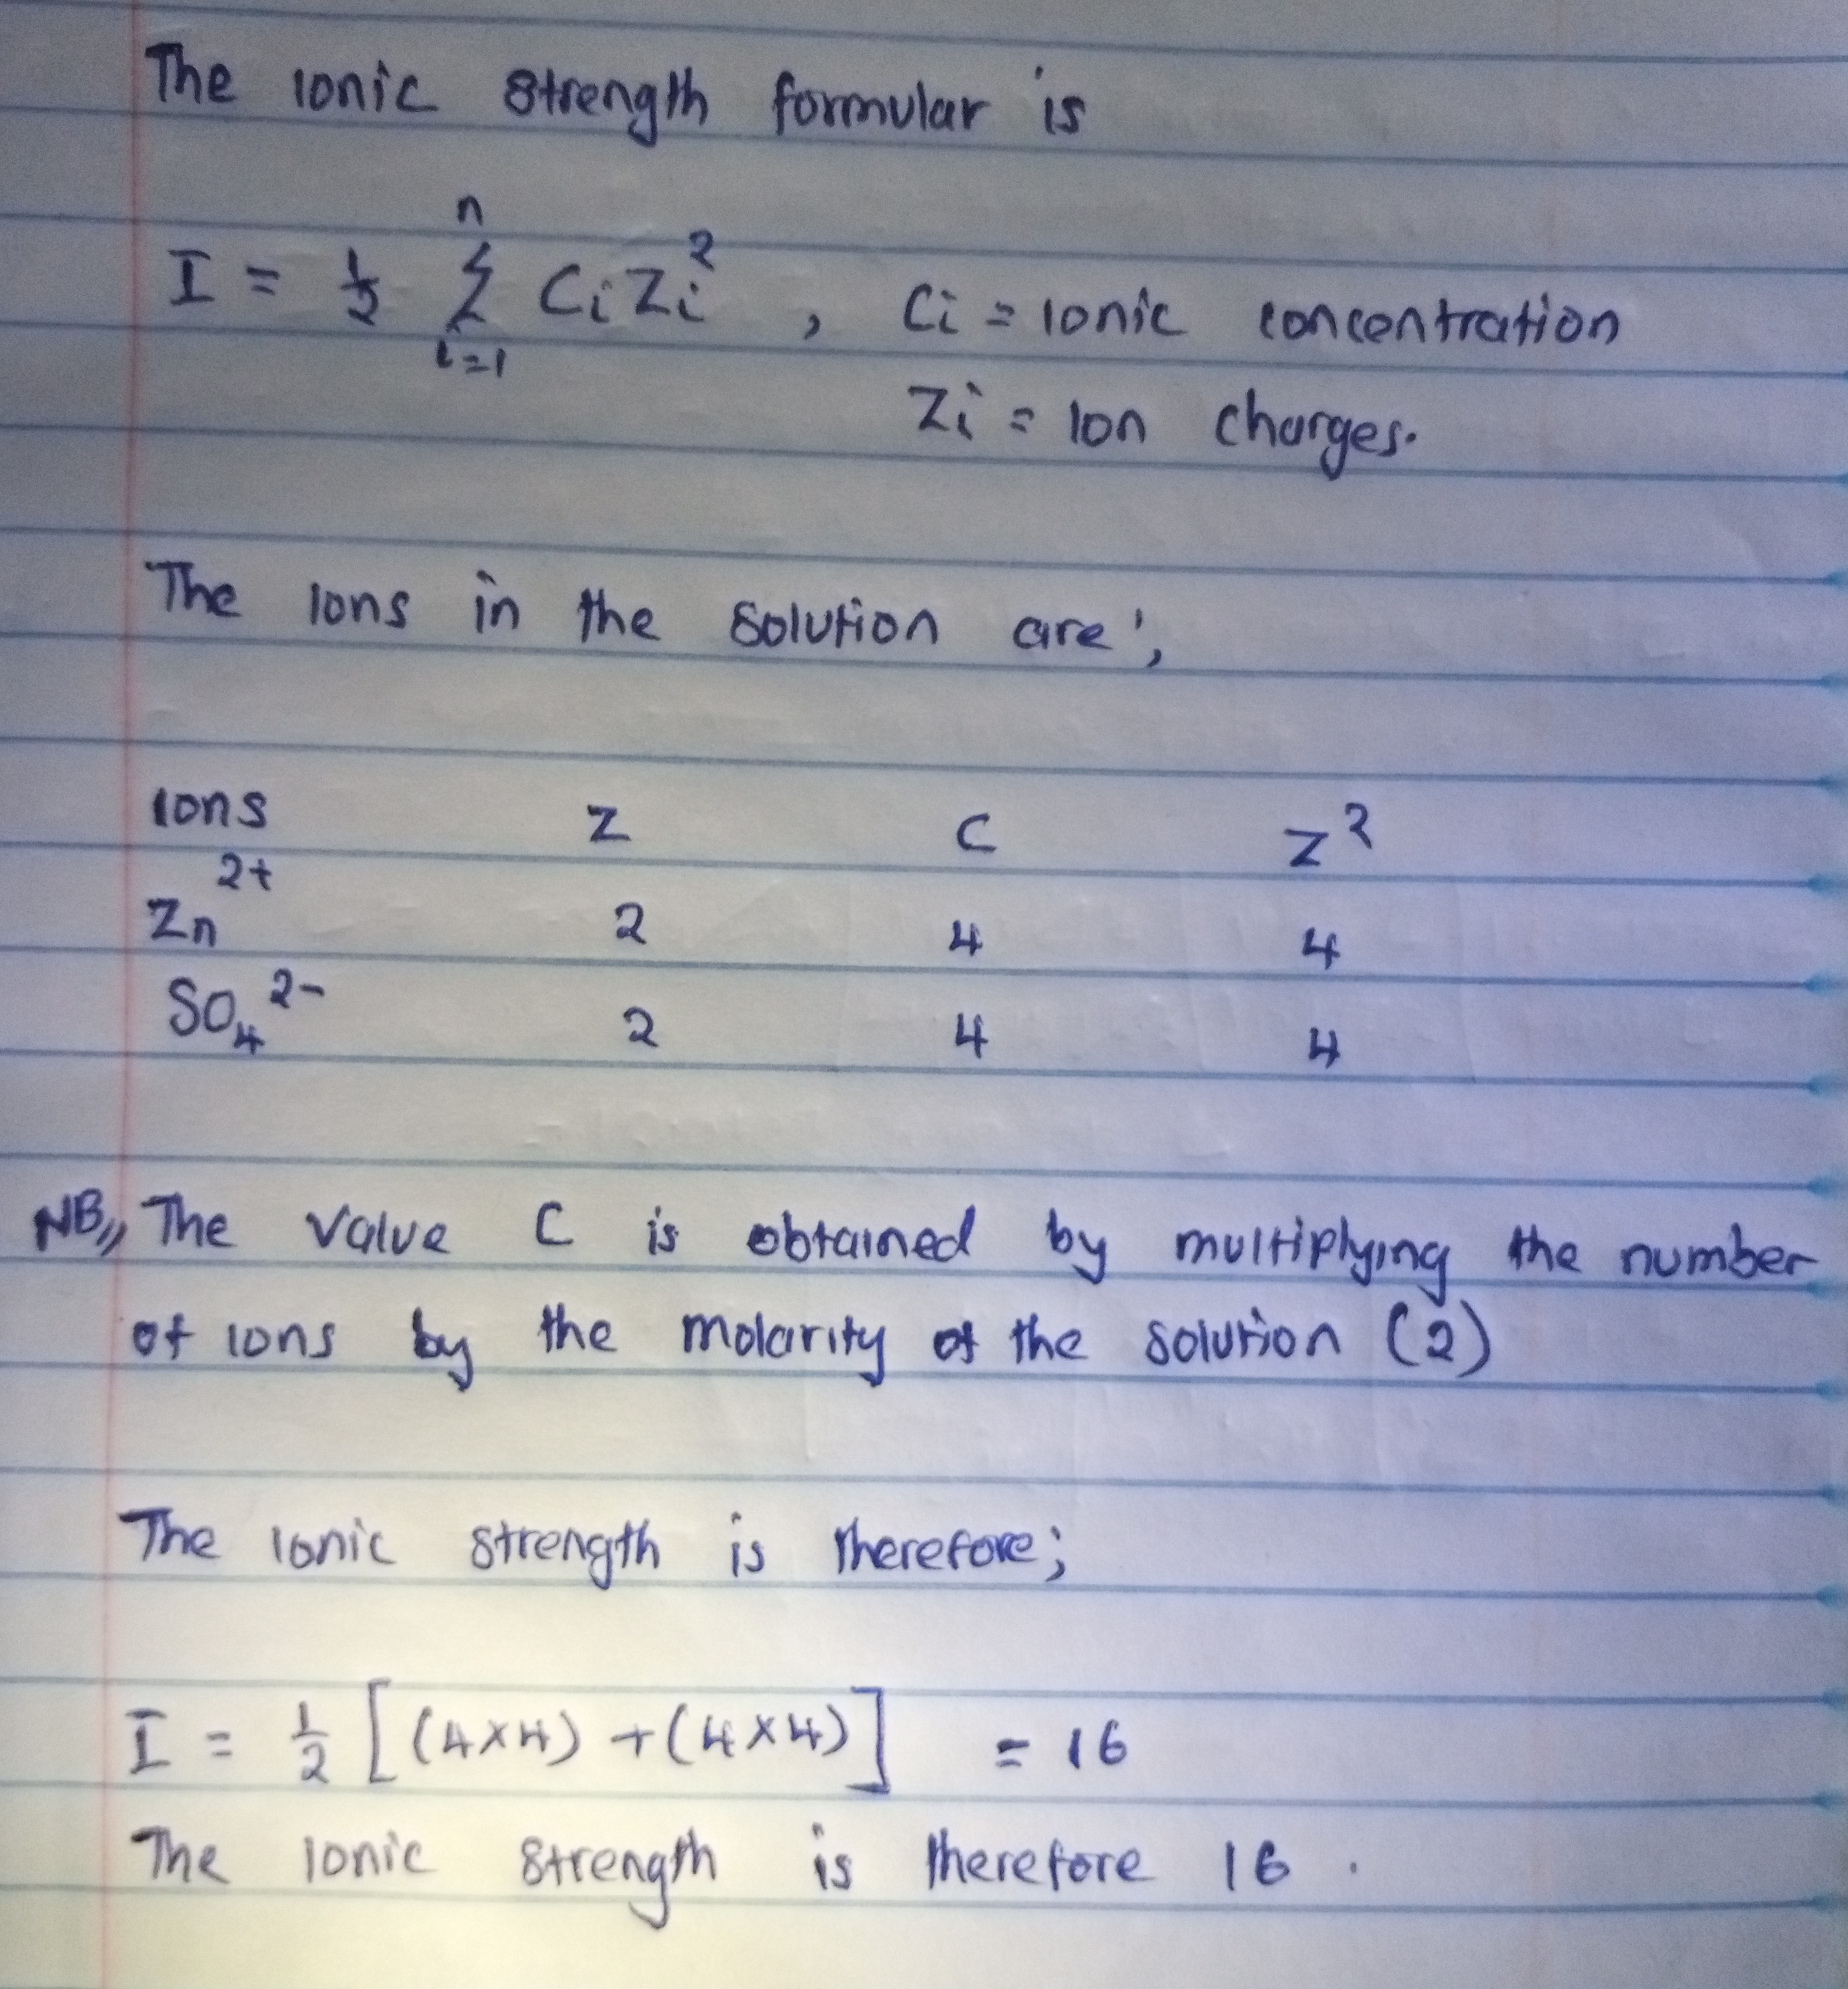 The ionic strength formular is
I = 1/2 n Σ i=1 CiZi² , Ci = ionic concentration
Zi = ion charges.
The ions in the solution are;
ions Z C Z²
Zn²⁺ 2 4 4
SO₄²⁻ 2 4 4
NB,, The value C is obtained by multiplying the number
of ions by the molarity of the solution (2)
The ionic strength is therefore;
I = 1/2 [(4×4) + (4×4)] = 16
The ionic strength is therefore 16.